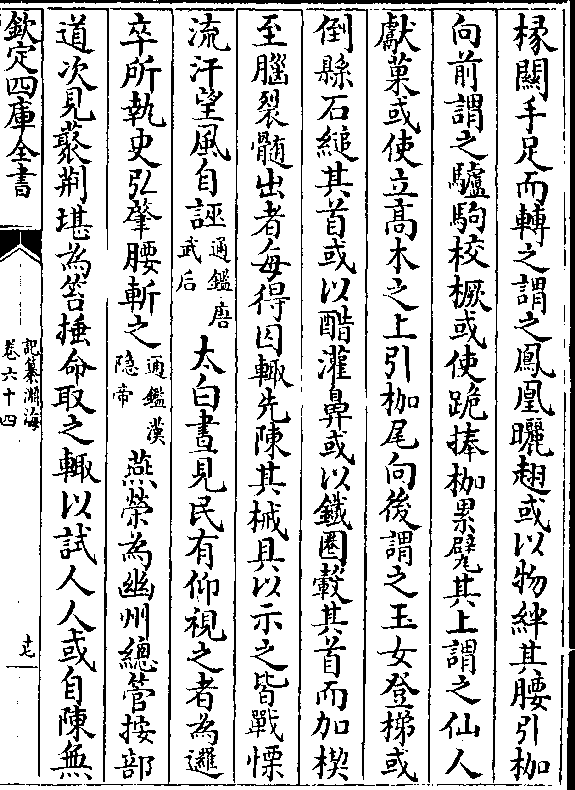 椽關手足而轉之謂之鳳凰曬翅或以物絆其腰引枷
向前謂之驢駒校橛或使跪捧枷累甓其上謂之仙人
獻菓或使立高木之上引枷尾向後謂之玉女登梯或
倒縣石縋其首或以醋灌鼻或以鐵圏轂其首而加楔
至腦裂髓出者每得囚輒先陳其械具以示之皆戰慄
流汗望風自誣通鑑唐武后 太白晝見民有仰視之者為邏
卒所執史弘肇腰斬之通鑑漢隐帝 燕榮為幽州總管按部
道次見叢荆堪為笞捶命取之輙以試人人或自陳無
欽定四庫全書
記纂淵海
卷六十四